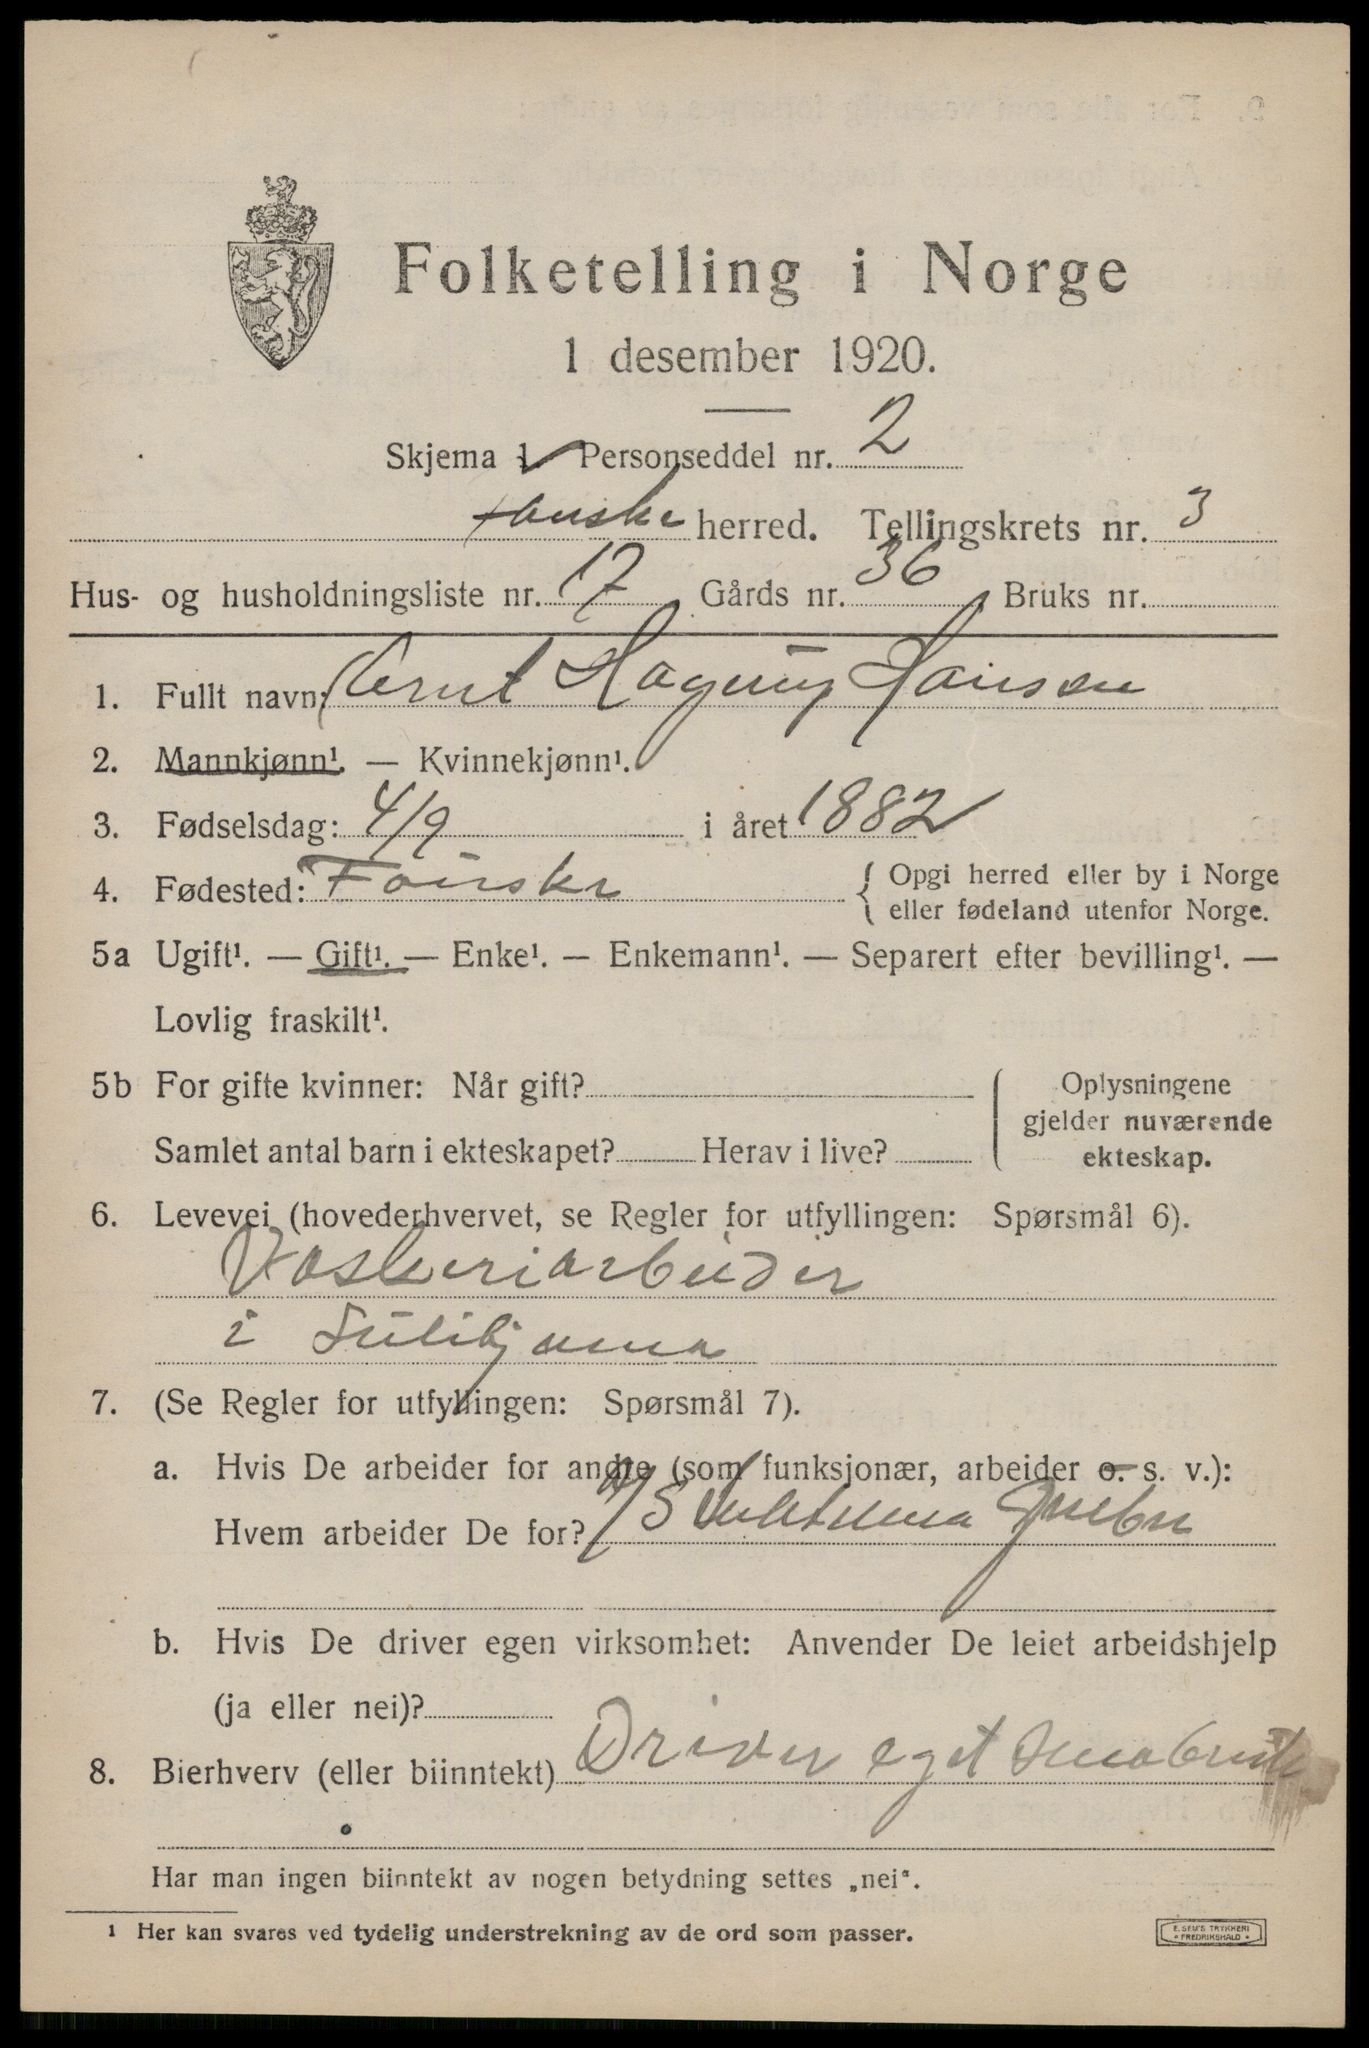 Folketelling i Norge
1 desember 1920.
Skjema 1 Personseddel nr. 2
Fauske herred. Tellingskrets nr. 3
Hus- og husholdningsliste nr. 17 Gårds nr. 36 Bruks nr.
1. Fullt navn: Arnt Hagerup Hansen
2. Mannkjønn¹. — Kvinnekjønn¹.
3. Fødselsdag: 4/9 i året 1882
4. Fødested: Fauske { Opgi herred eller by i Norge
eller fødeland utenfor Norge.
5a Ugift¹. — Gift¹. — Enke¹. — Enkemann¹. — Separert efter bevilling¹. —
Lovlig fraskilt¹.
5b For gifte kvinner: Når gift? Oplysningene
gjelder nuværende
Samlet antal barn i ekteskapet? Herav i live? ekteskap.
6. Levevei (hovederhvervet, se Regler for utfyllingen: Spørsmål 6).
Vaskeriarbeider
i Sulitjelma
7. (Se Regler for utfyllingen: Spørsmål 7).
a. Hvis De arbeider for andre (som funksjonær, arbeider o. s. v.):
Hvem arbeider De for? A/S Sulitjelma Gruber
b. Hvis De driver egen virksomhet: Anvender De leiet arbeidshjelp
(ja eller nei)?
8. Bierhverv (eller biinntekt) Driver eget Smabruk
Har man ingen biinntekt av nogen betydning settes „nei".
1 Her kan svares ved tydelig understrekning av de ord som passer.
E. SEM'S TRYKKERI
* FREDRIKSHALD *